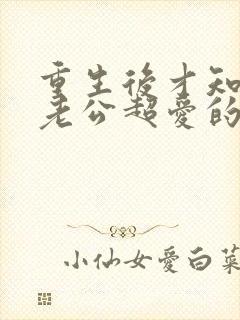 重生後才知
老公超愛的
小仙女愛白菜